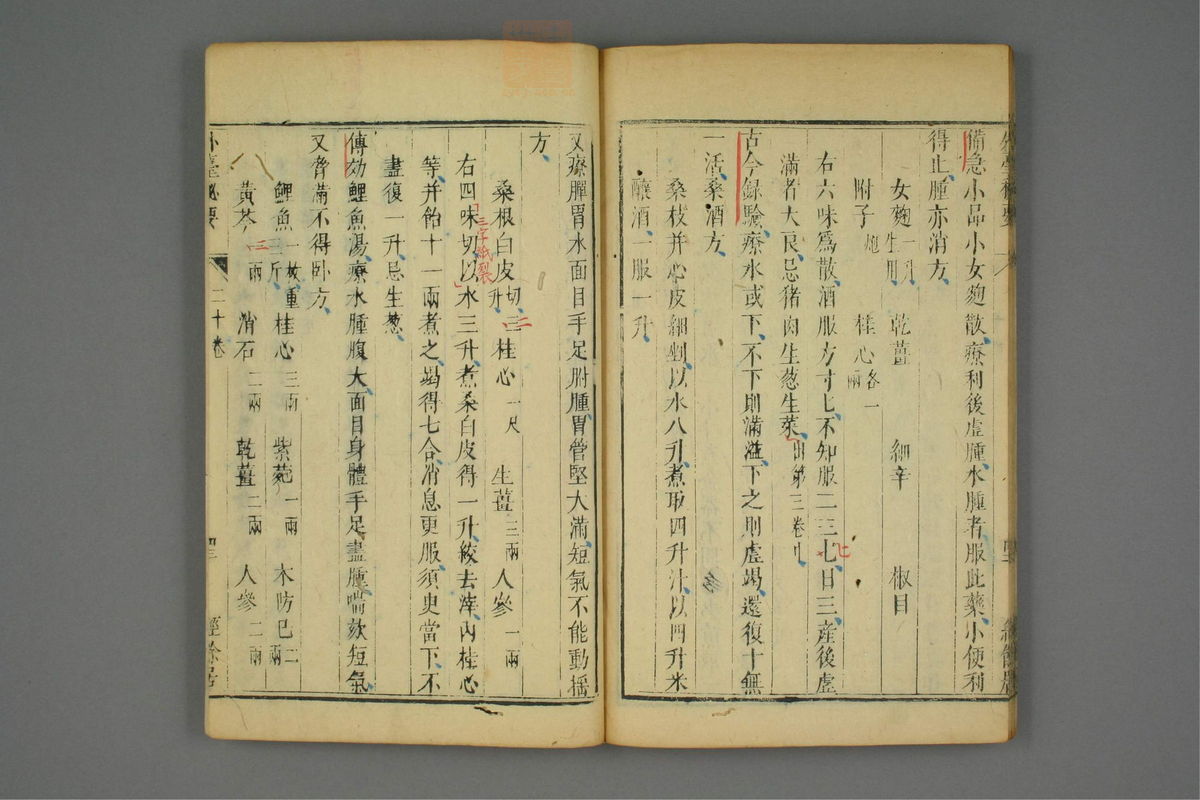 備急小品小女麴散療利後虛腫水腫者服此藥小便利
得止腫亦消方
女麴一升生用 乾薑 細辛 椒目
附子炮 桂心各一兩
右六味爲散酒服方寸七不知服二三七日三產後虛
七
滿者大良忌猪肉生葱生菜出第三卷中
古今録驗療水或下不下則滿溢下之則虛竭還復十無
一活桑酒方
桑枝并心皮細剉以水八升煮取四升汁以四升米
釀酒一服一升
又療脾胃水面目手足胕腫胃管堅大滿短氣不能動揺
方
桑根白皮切三升 桂心一尺 生薑三兩 人參一兩
二
右四味切以水三升煮桑白皮得一升絞去滓內桂心
三字紙裂
等并飴十一兩煮之竭得七合消息更服須臾當下不
盡復一升忌生葱
傳効鯉魚湯療水腫腹大面目身體手足盡腫喘欬短氣
又脅滿不得卧方
鯉魚一枚重三斤 桂心三兩 紫菀一兩 木防已二兩
黃芩二兩 消石二兩 乾薑二兩 人參二兩
外臺秘要 二十卷 經餘居